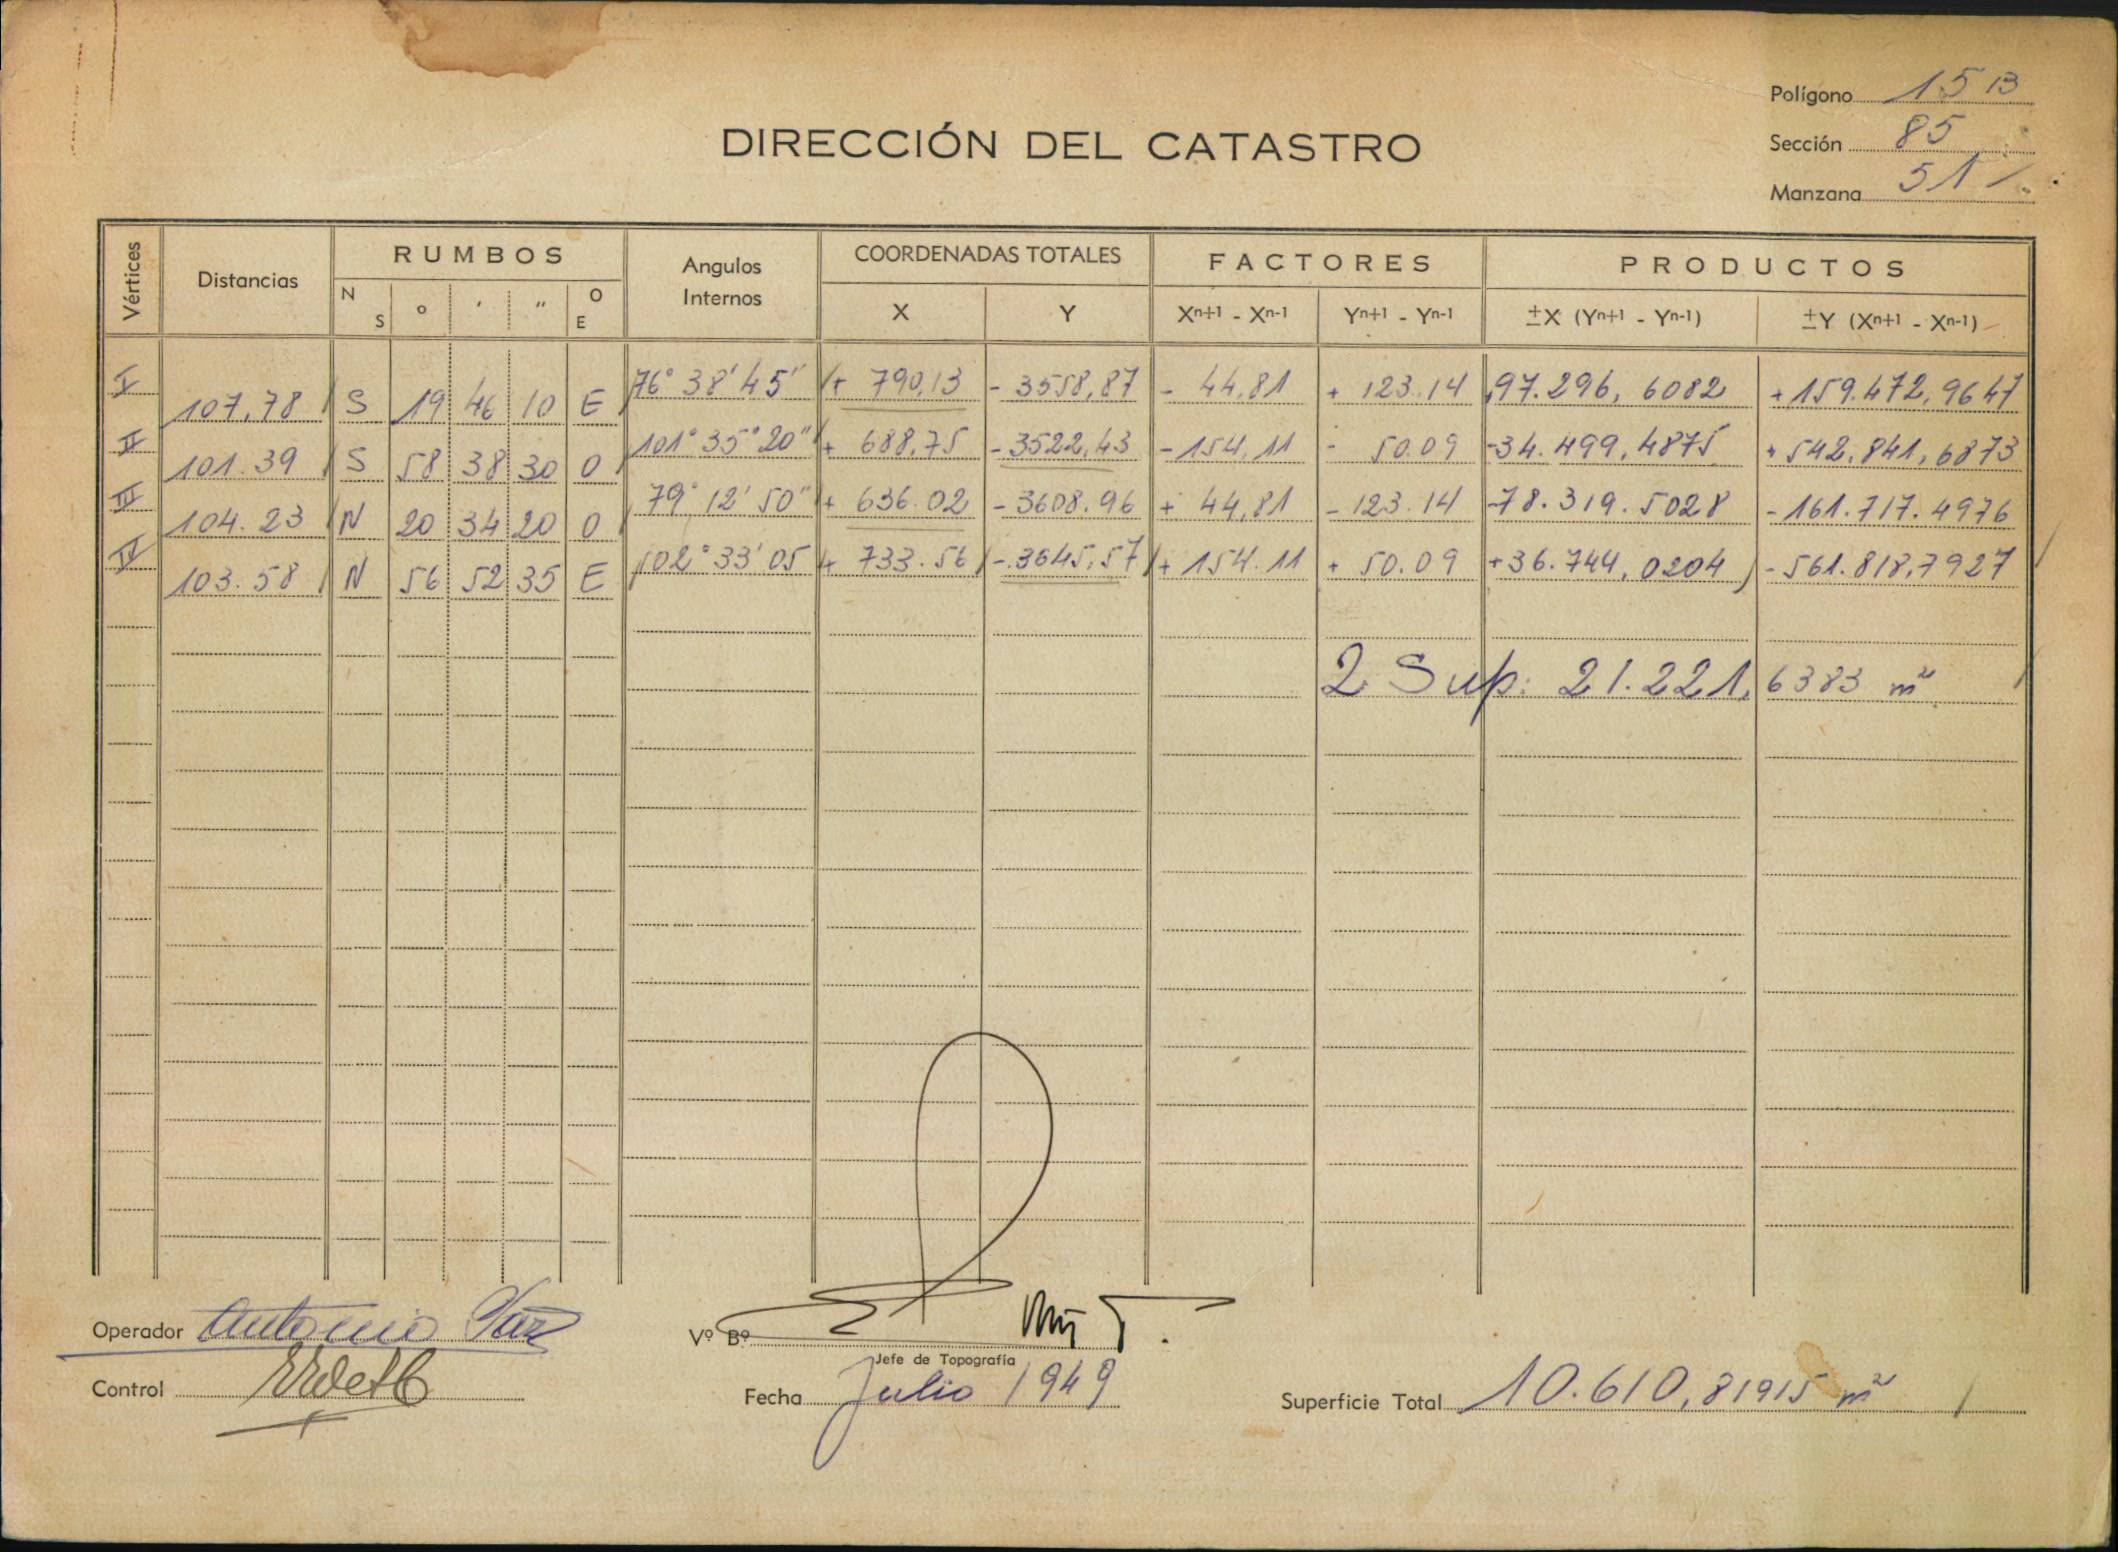 Polígono 15 B
DIRECCIÓN DEL CATASTRO
Sección 85
Manzana 51
Vértices Distancias RUMBOS Angulos Internos COORDENADAS TOTALES FACTORES PRODUCTOS
N S o ' " O E X Y Xn+1 - Xn-1 Yn+1 - Yn-1 ±X (Yn+1 - Yn-1) ±Y (Xn+1 - Xn-1)
I 107,78 S 19 46 10 E 76° 38' 45" + 790,13 - 3558,87 - 44,81 + 123.14 97.296, 6082 + 159.472,9647
II 101.39 S 58 38 30 O 101° 35° 20" + 688,75 - 3522,43 - 154,11 - 50.09 -34.499,4875 + 542.841,6873
III 104.23 N 20 34 20 O 79° 12' 50" + 636.02 - 3608.96 + 44,81 - 123.14 -78.319.5028 - 161.717.4976
IV 103.58 N 56 52 35 E 102° 33' 05 + 733.56 - 3645,57 + 154.11 + 50.09 +36.744,0204 - 561.818,7927
2 Sup: 21.221,6383 m²
Operador Antonio
Vº Bº
Jefe de Topografía
Control
Fecha Julio 1949
Superficie Total 10.610,81915 m²